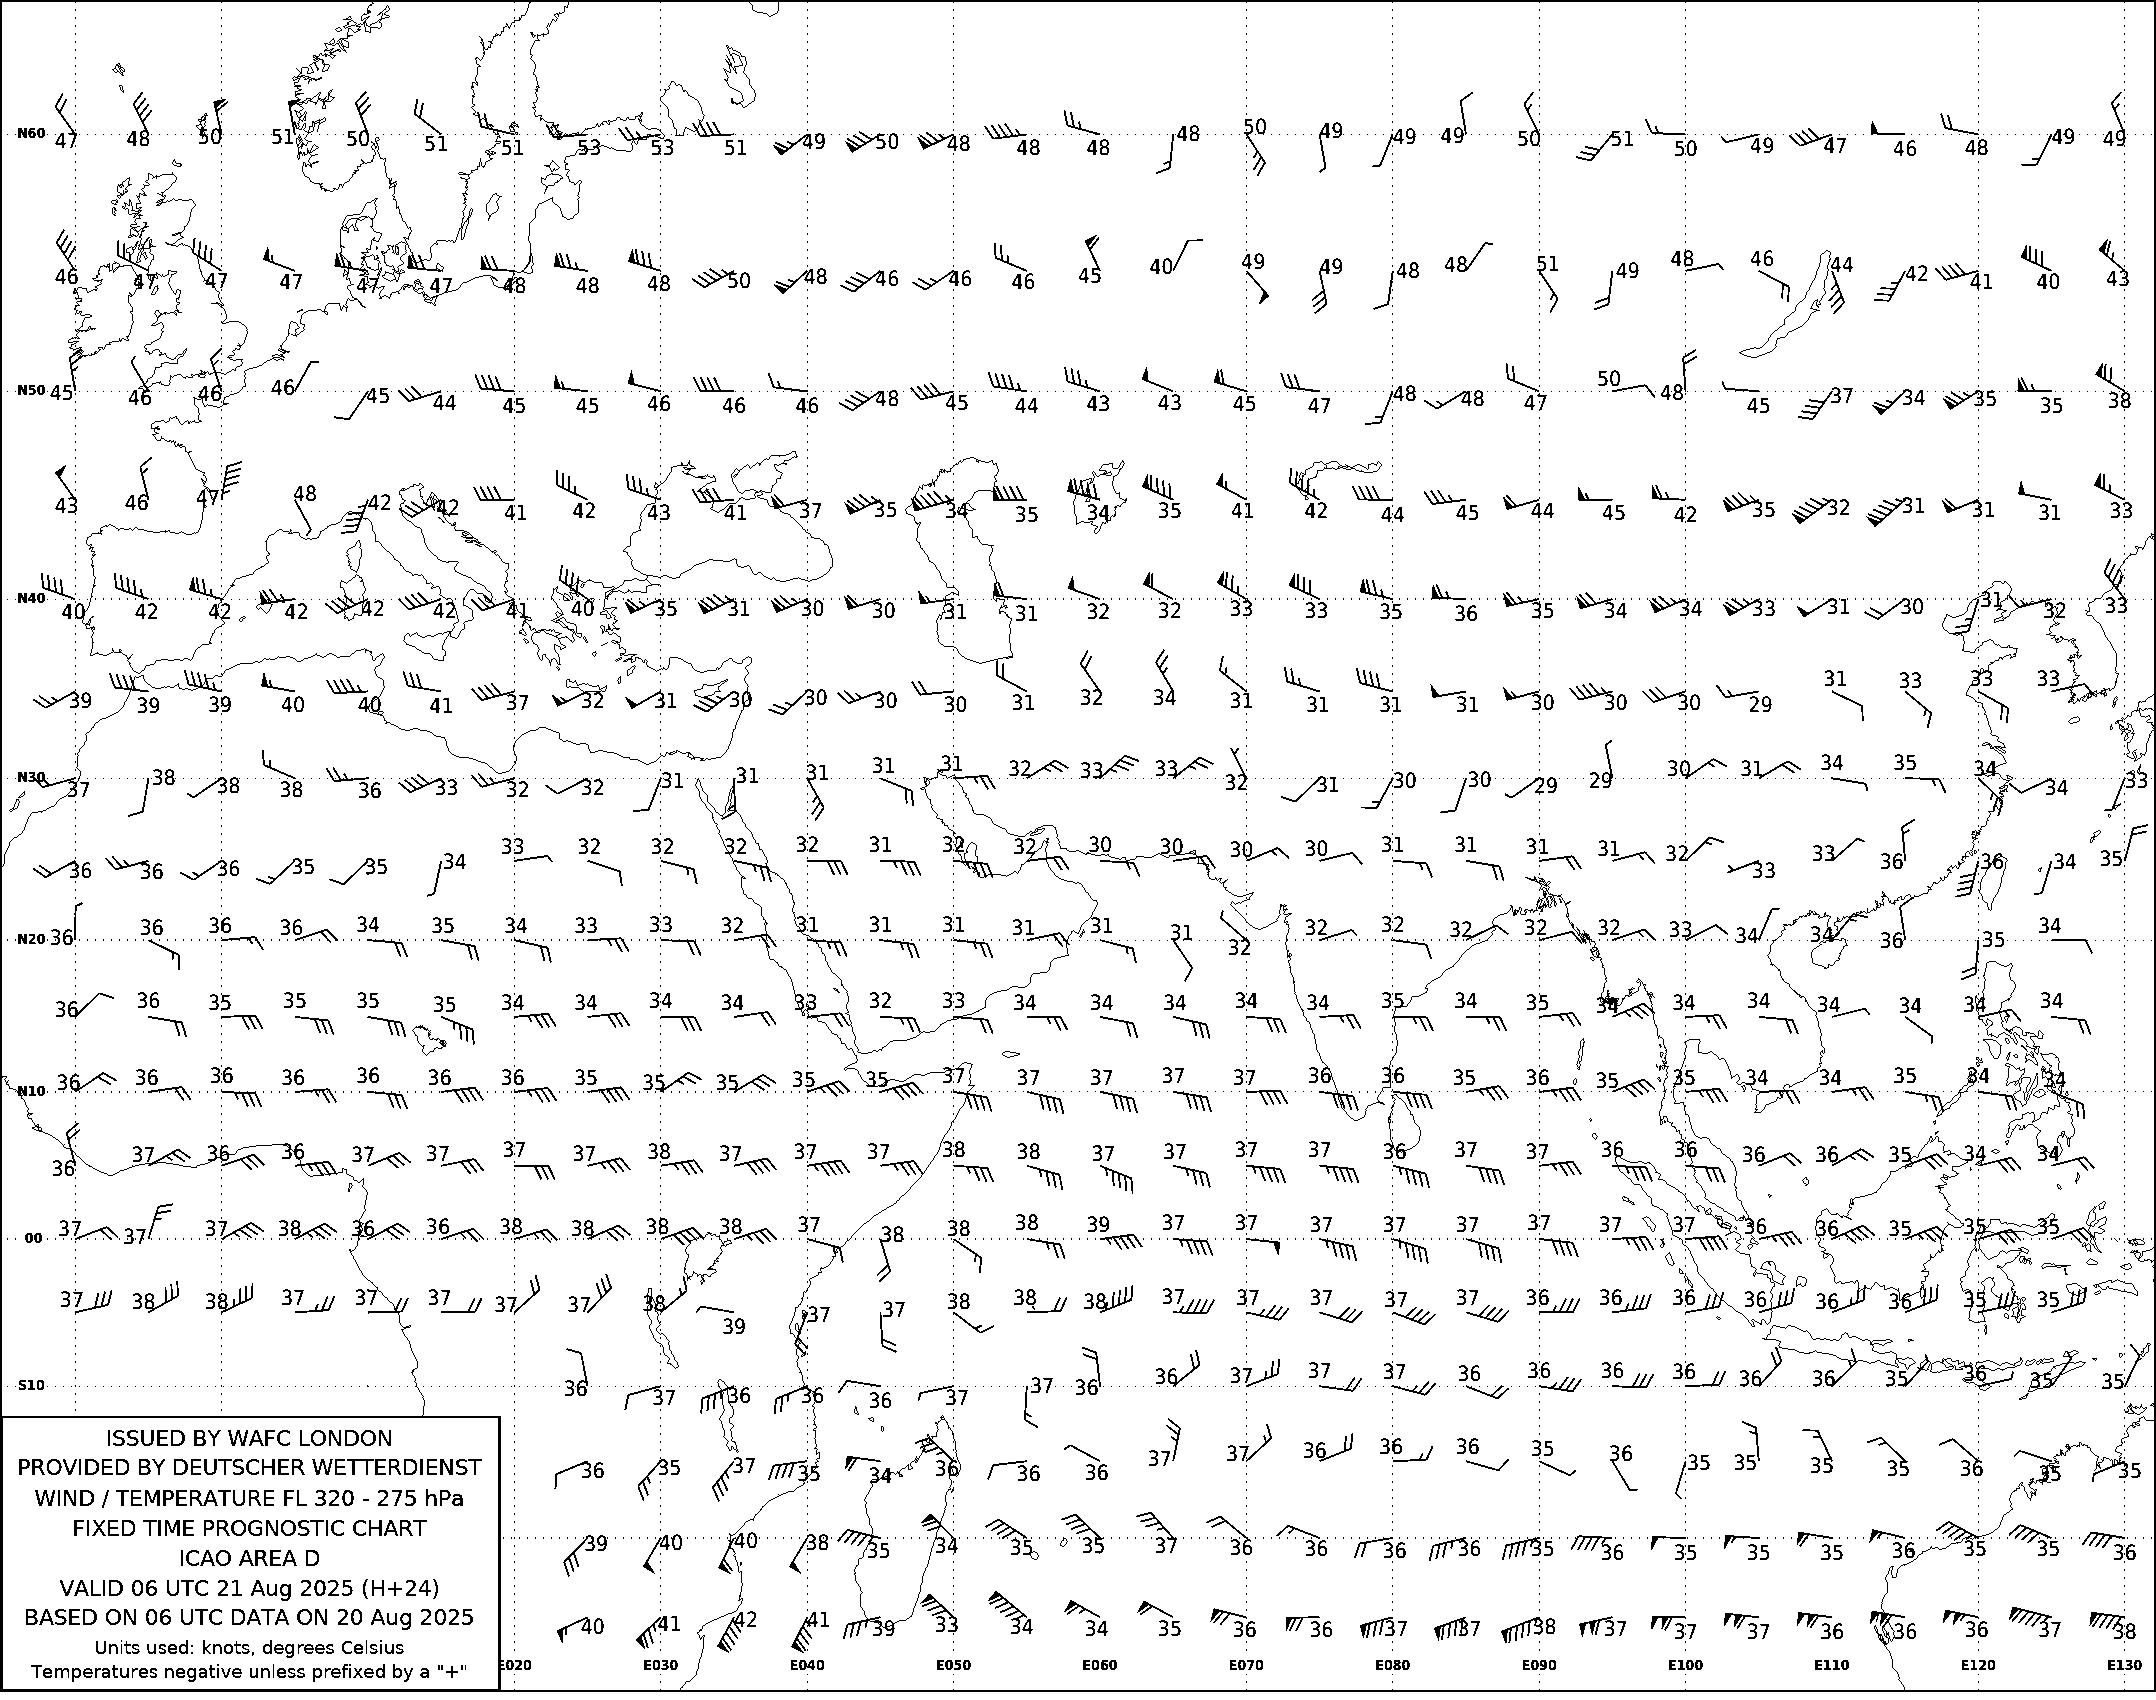 N60 47 48 50 51 50 51 51 53 53 51 49 50 48 48 48 48 50 49 49 49 50 51 50 49 47 46 48 49 49
46 47 47 47 47 47 48 48 48 50 48 46 46 46 45 40 49 49 48 48 51 49 48 46 44 42 41 40 43
N50 45 46 46 46 45 44 45 45 46 46 46 48 45 44 43 43 45 47 48 48 47 50 48 45 37 34 35 35 38
43 46 47 48 42 42 41 42 43 41 37 35 34 35 34 35 41 42 44 45 44 45 42 35 32 31 31 31 33
N40 40 42 42 42 42 42 41 40 35 31 30 30 31 31 32 32 33 33 35 36 35 34 34 33 31 30 31 32 33
39 39 39 40 40 41 37 32 31 30 30 30 30 31 32 34 31 31 31 31 30 30 30 29 31 33 33 33
N30 37 38 38 38 36 33 32 32 31 31 31 31 31 32 33 33 32 31 30 30 29 29 30 31 34 35 34 34 33
36 36 36 35 35 34 33 32 32 32 32 31 32 32 30 30 30 30 31 31 31 31 32 33 33 36 36 34 35
N20 36 36 36 36 34 35 34 33 33 32 31 31 31 31 31 31 32 32 32 32 32 32 33 34 34 36 35 34
36 36 35 35 35 35 34 34 34 34 33 32 33 34 34 34 34 34 35 34 35 34 34 34 34 34 34 34
N10 36 36 36 36 36 36 36 35 35 35 35 35 37 37 37 37 37 36 36 35 36 35 35 34 34 35 34 34
36 37 36 36 37 37 37 37 38 37 37 37 38 38 37 37 37 37 36 37 37 36 36 36 36 35 34 34
00 37 37 37 38 36 36 38 38 38 38 37 38 38 38 39 37 37 37 37 37 37 37 37 36 36 35 35 35
37 38 38 37 37 37 37 37 38 39 37 37 38 38 38 37 37 37 37 37 36 36 36 36 36 36 35 35
S10 36 37 36 36 36 37 37 36 36 37 37 37 36 36 36 36 36 36 35 36 35 35
36 35 37 35 34 36 36 36 37 37 36 36 36 35 36 35 35 35 35 36 35 35
39 40 40 38 35 34 35 35 37 36 36 36 36 35 36 35 35 35 36 35 35 36
40 41 42 41 39 33 34 34 35 36 36 37 37 38 37 37 37 36 36 36 37 38
E020 E030 E040 E050 E060 E070 E080 E090 E100 E110 E120 E130
ISSUED BY WAFC LONDON
PROVIDED BY DEUTSCHER WETTERDIENST
WIND / TEMPERATURE FL 320 - 275 hPa
FIXED TIME PROGNOSTIC CHART
ICAO AREA D
VALID 06 UTC 21 Aug 2025 (H+24)
BASED ON 06 UTC DATA ON 20 Aug 2025
Units used: knots, degrees Celsius
Temperatures negative unless prefixed by a "+"